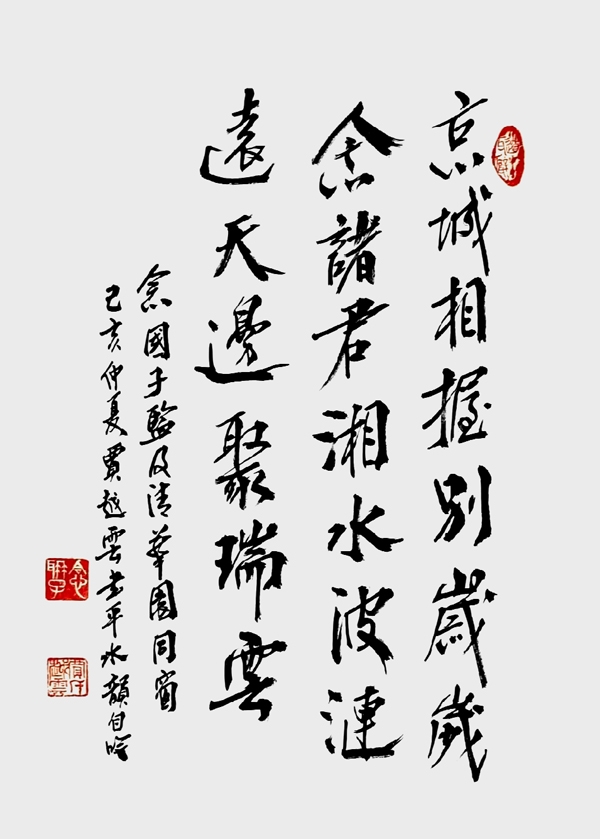 京城相握別歲歲
念諸君湘水波漣
遠天邊聚瑞雲
念國子監及清華園同窗
己亥仲夏賈越雲書平水韻自吟